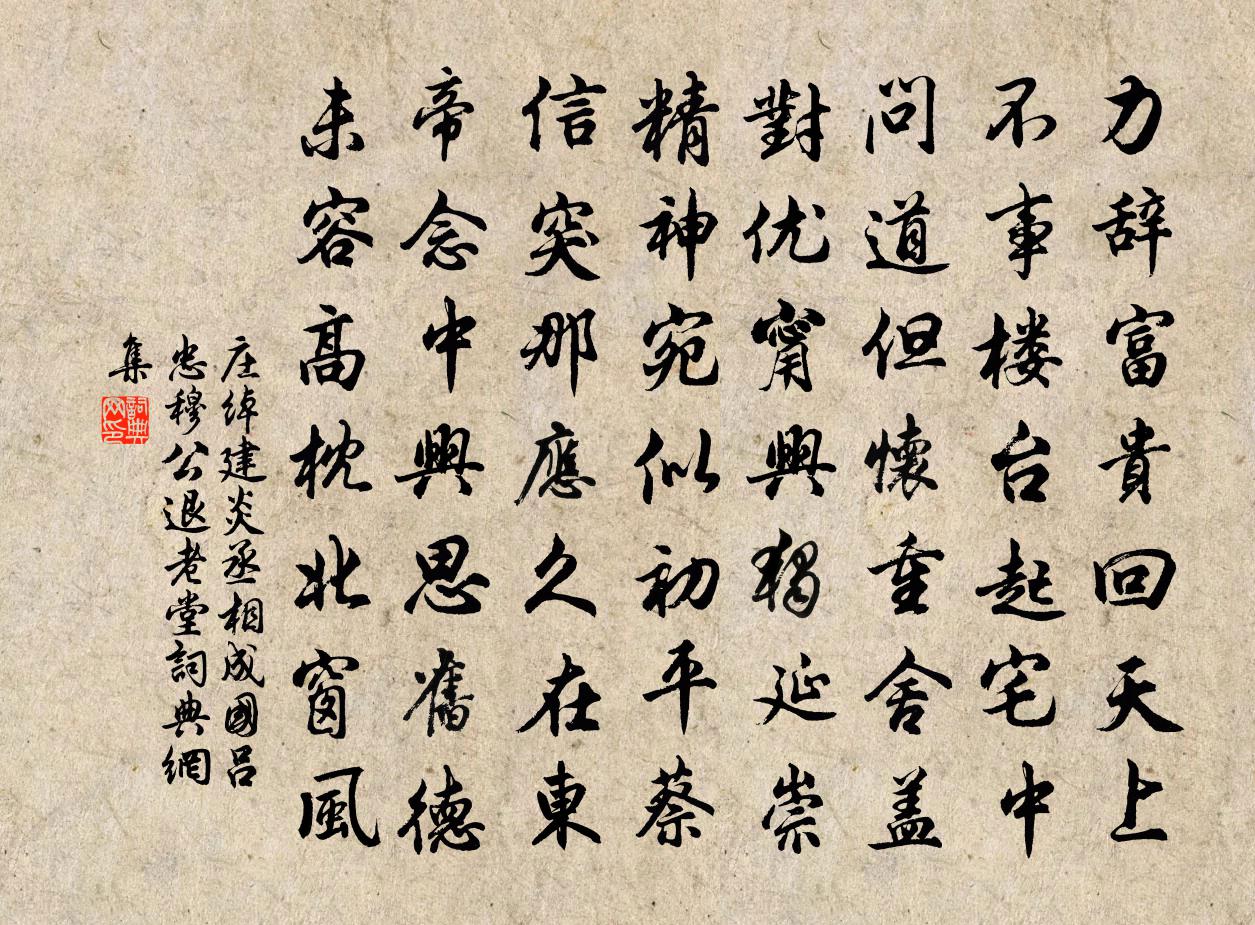 力辞富貴回天上
不事楼台起宅中
問道但懷重舍盖
對优甯興独延崇
精神宛似初平蔡
信突那應久在東
帝念中興思舊德
未容高枕北窗風
庄绰建炎丞相成國呂
忠穆公退老堂詞典網
集
詞典網印